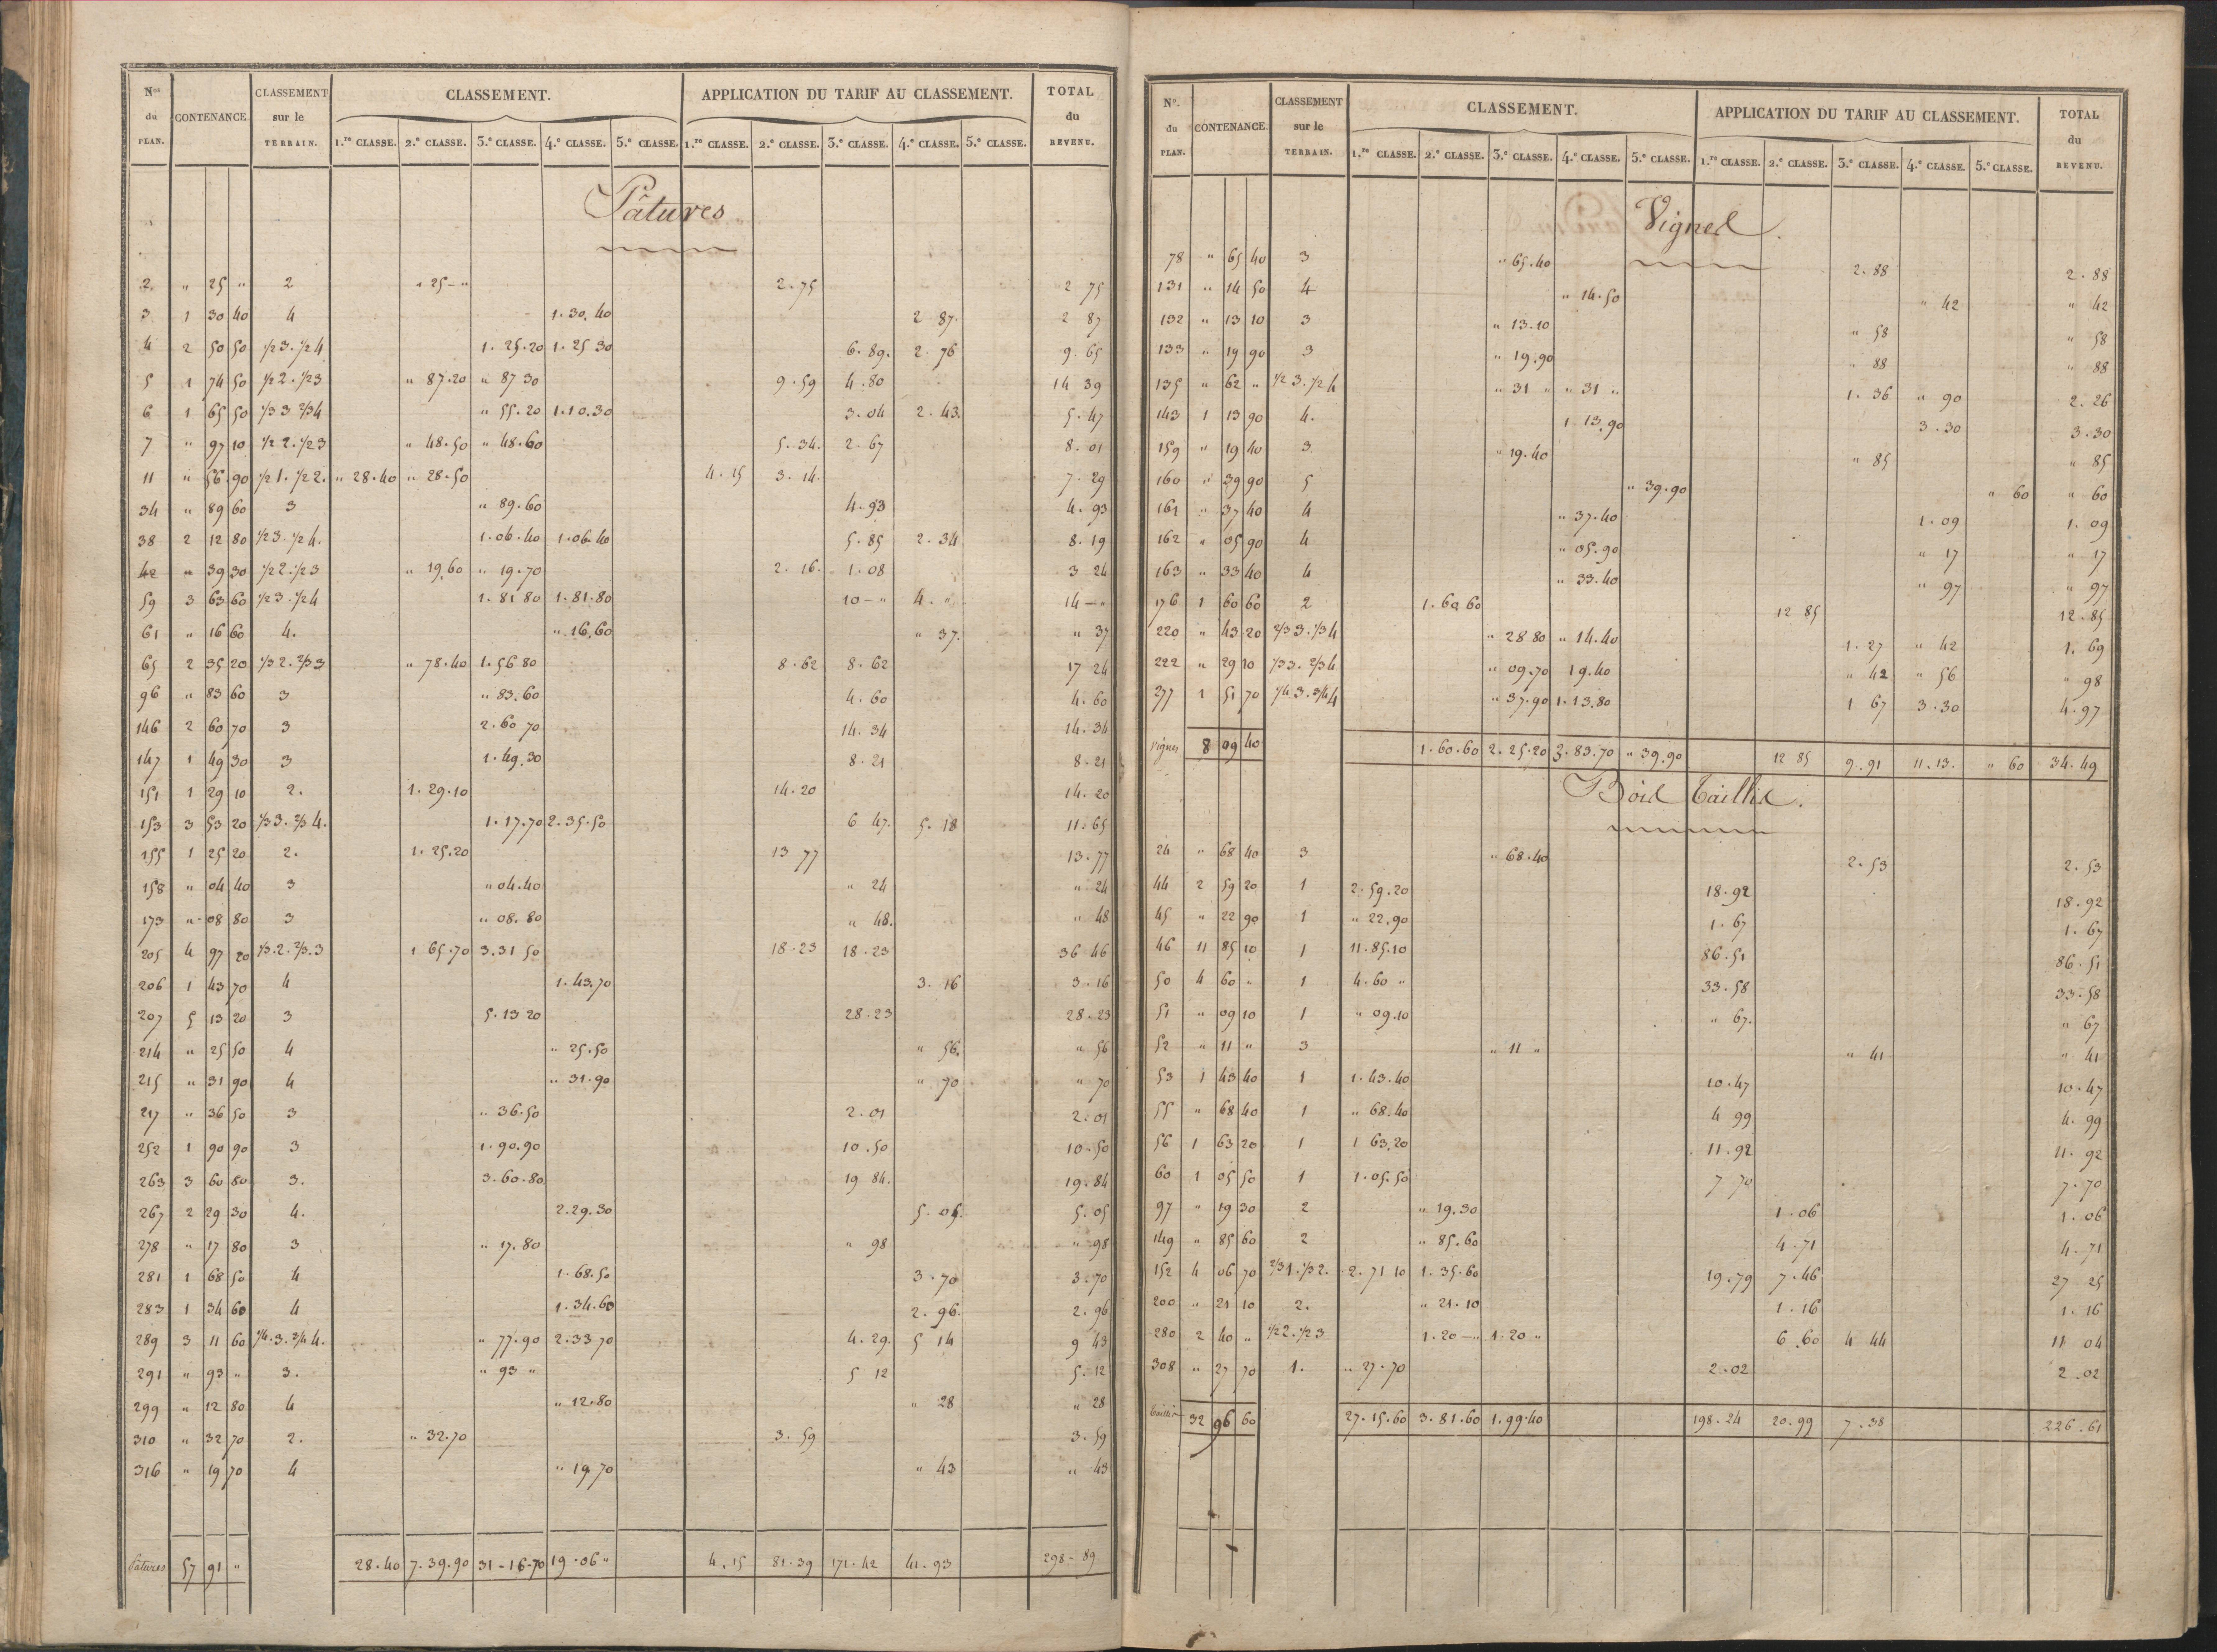 Nos du PLAN. CONTENANCE. CLASSEMENT sur le TERRAIN. CLASSEMENT. APPLICATION DU TARIF AU CLASSEMENT. TOTAL du REVENU.
1.re CLASSE. 2.e CLASSE. 3.e CLASSE. 4.e CLASSE. 5.e CLASSE. 1.re CLASSE. 2.e CLASSE. 3.e CLASSE. 4.e CLASSE. 5.e CLASSE.
Pâtures
2 " 25 " 2 " 25 - " 2.75 2 75
3 1 30 40 4 1.30.40 2 87. 2 87
4 2 50 50 1/2 3. 1/2 4 1.25.20 1.25 30 6.89. 2.76 9.65
5 1 74 50 1/2 2. 1/2 3 " 87.20 " 87 30 9.59 4.80 14 39
6 1 65 50 1/3 3 2/3 4 " 55.20 1.10.30 3.04 2.43. 5.47
7 " 97 10 1/2 2. 1/2 3 " 48.50 " 48.60 5.34. 2.67 8.01
11 " 56.90 1/2 1. 1/2 2. " 28.40 " 28.50 4.15 3.14. 7.29
34 " 89 60 3 " 89.60 4.93 4.93
38 2 12 80 1/2 3. 1/2 4. 1.06.40 1.06.40 5.85 2.34 8.19
42 " 39 30 1/2 2. 1/2 3 " 19.60 " 19.70 2.16. 1.08 3 24
59 3 63 60 1/2 3. 1/2 4 1.81 80 1.81.80 10 - " 4. " 14 - "
61 " 16 60 4. " 16.60 " 37. " 37
65 2 35 20 1/3 2. 2/3 3 " 78.40 1.56 80 8.62 8.62 17 24
96 " 83 60 3 " 83.60 4.60 4.60
146 2 60 70 3 2.60 70 14.34 14.34
147 1 49 30 3 1.49.30 8.21 8.21
151 1 29 10 2. 1.29.10 14.20 14.20
153 3 53 20 1/3 3. 2/3 4. 1.17.70 2.35.50 6 47. 5.18 11.65
155 1 25 20 2. 1.25.20 13 77 13.77
158 " 04 40 3 " 04.40 " 24 " 24
173 " 08 80 3 " 08.80 " 48. " 48
205 4 97 20 1/3.2. 2/3.3 1 65.70 3.31 50 18.23 18.23 36 46
206 1 43 70 4 1.43.70 3.16 3.16
207 5 13 20 3 5.13 20 28.23 28.23
214 " 25 50 4 " 25.50 " 56. " 56
215 " 31 90 4 " 31.90 " 70 " 70
217 " 36 50 3 " 36.50 2.01 2.01
252 1 90 90 3 1.90.90 10.50 10.50
263 3 60 80 3. 3.60.80 19 84. 19.84
267 2 29 30 4. 2.29.30 5.05. 5.05
278 " 17 80 3 " 17.80 " 98 " 98
281 1 68 50 4 1.68.50 3.70 3.70
283 1 34 60 4 1.34.60 2.96. 2.96
289 3 11 60 1/4.3. 3/4 4. " 77.90 2.33 70 4.29. 5 14 9 43
291 " 93 " 3. " 93 " 5 12 5.12
299 " 12 80 4 " 12.80 " 28 " 28
310 " 32 70 2. " 32.70 3.59 3.59
316 " 19 70 4 " 19 70 " 43 " 43
Pâtures 57 91 " 28.40 7.39.90 31-16-70 19.06 " 4.15 81.39 171.42 41.93 298-89
N.o du PLAN. CONTENANCE. CLASSEMENT sur le TERRAIN. CLASSEMENT. APPLICATION DU TARIF AU CLASSEMENT. TOTAL du REVENU.
1.re CLASSE. 2.e CLASSE. 3.e CLASSE. 4.e CLASSE. 5.e CLASSE. 1.re CLASSE. 2.e CLASSE. 3.e CLASSE. 4.e CLASSE. 5.e CLASSE.
Vignes.
78 " 65 40 3 " 65.40 2.88 2.88
131 " 14 50 4 " 14.50 " 42 " 42
132 " 13 10 3 " 13.10 " 58 " 58
133 " 19 90 3 " 19.90 " 88 " 88
135 " 62 " 1/2 3. 1/2 4 " 31 " " 31 " 1.36 " 90 2.26
143 1 13 90 4. 1 13.90 3.30 3.30
159 " 19 40 3 " 19.40 " 85 " 85
160 " 39 90 5 " 39.90 " 60 " 60
161 " 37 40 4 " 37.40 1.09 1.09
162 " 05 90 4 " 05.90 " 17 " 17
163 " 33 40 4 " 33.40 " 97 " 97
176 1 60 60 2 1.60 60 12 85 12.85
220 " 43 20 2/3 3. 1/3 4 " 28 80 " 14.40 1.27 " 42 1.69
222 " 29 10 1/3 3. 2/3 4 " 09.70 19.40 " 42 " 56 " 98
277 1 51 70 1/4 3. 3/4 4 " 37.90 1.13.80 1 67 3.30 4.97
Vignes 8 09 40 1.60.60 2.25.20 3.83.70 " 39.90 12 85 9.91 11.13. " 60 34.49
Bois Taillis.
24 " 68 40 3 " 68.40 2.53 2.53
44 2 59 20 1 2.59.20 18.92 18.92
45 " 22 90 1 " 22.90 1.67 1.67
46 11 85 10 1 11.85.10 86.51 86.51
50 4 60 " 1 4.60 " 33.58 33.58
51 " 09 10 1 " 09.10 " 67. " 67
52 " 11 " 3 " 11 " " 41 " 41
53 1 43 40 1 1.43.40 10.47 10.47
55 " 68 40 1 " 68.40 4 99 4.99
56 1 63 20 1 1 63.20 11.92 11.92
60 1 05 50 1 1.05.50 7 70 7.70
97 " 19 30 2 " 19.30 1.06 1.06
149 " 85 60 2 " 85.60 4.71 4.71
152 4 06 70 2/3 1. 1/3 2. 2.71 10 1.35.60 19.79 7.46 27 25
200 " 21 10 2. " 21.10 1.16 1.16
280 2 40 " 1/2 2. 1/2 3 1.20 - " 1.20 " 6.60 4 44 11 04
308 " 27 70 1. " 27.70 2.02 2.02
taillis 32 96 60 27.15.60 3.81.60 1.99.40 198.24 20.99 7.38 226.61